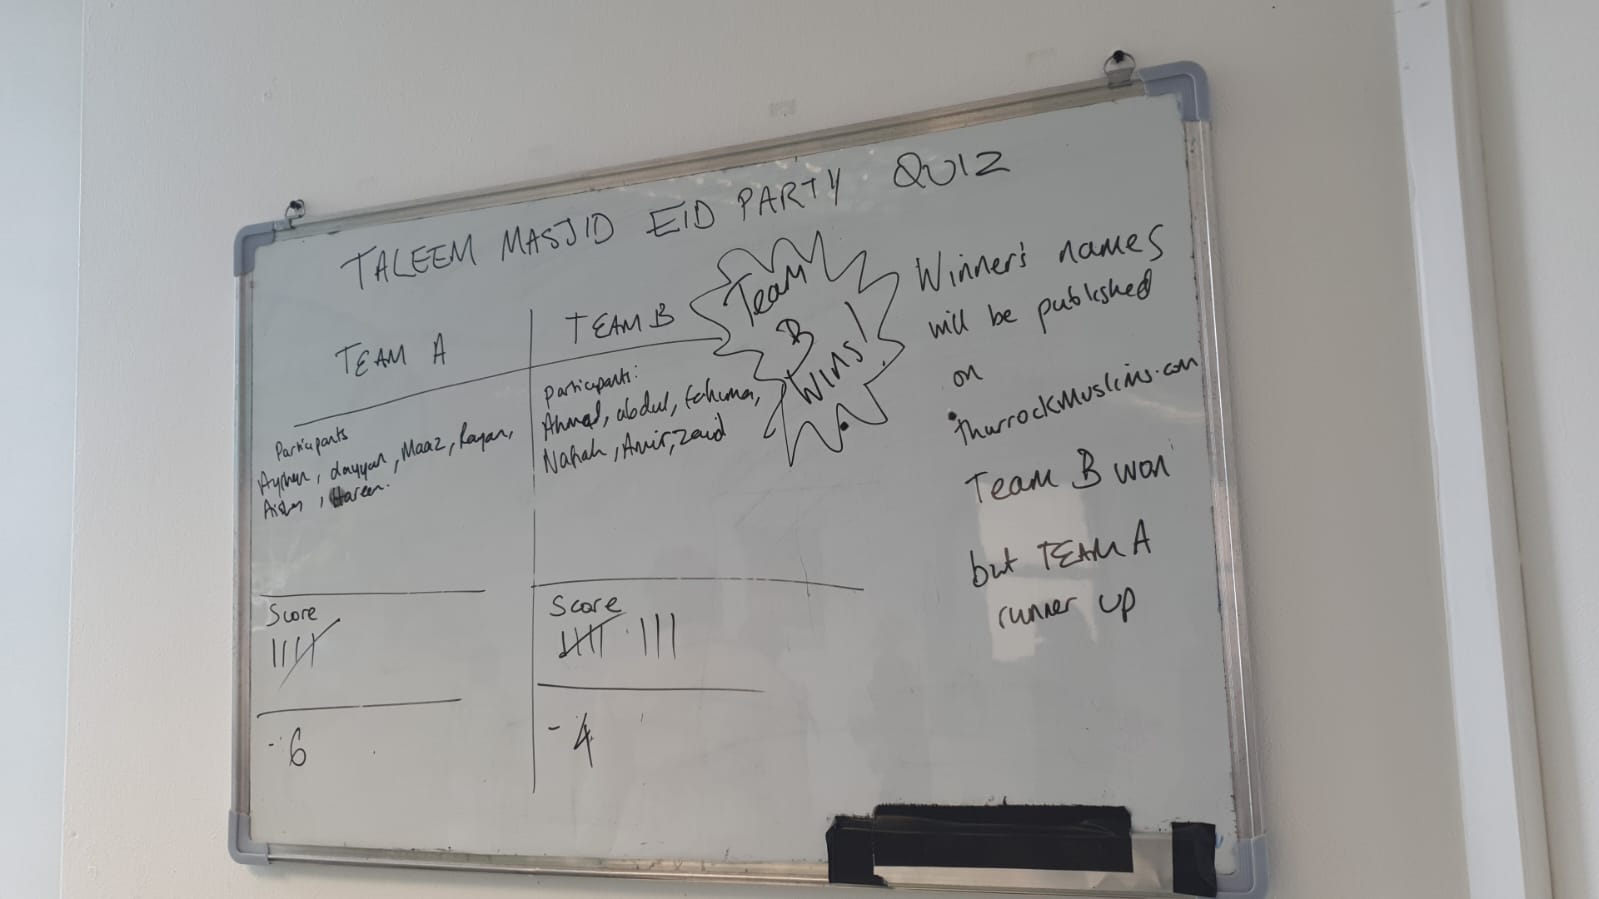 TALEEM MASJID EID PARTY QUIZ
TEAM A
Participants
Ayshen, dayyan, Maaz, Rayan,
Aisha, Hareem.
Score
- 6
TEAM B
Participants:
Ahmad, abdul, fahima,
Nafiah, Amir, Zaid
Score
- 4
Team
B
Wins!
Winner's names
will be published
on
thurrockmuslims.com
Team B won
but TEAM A
runner up